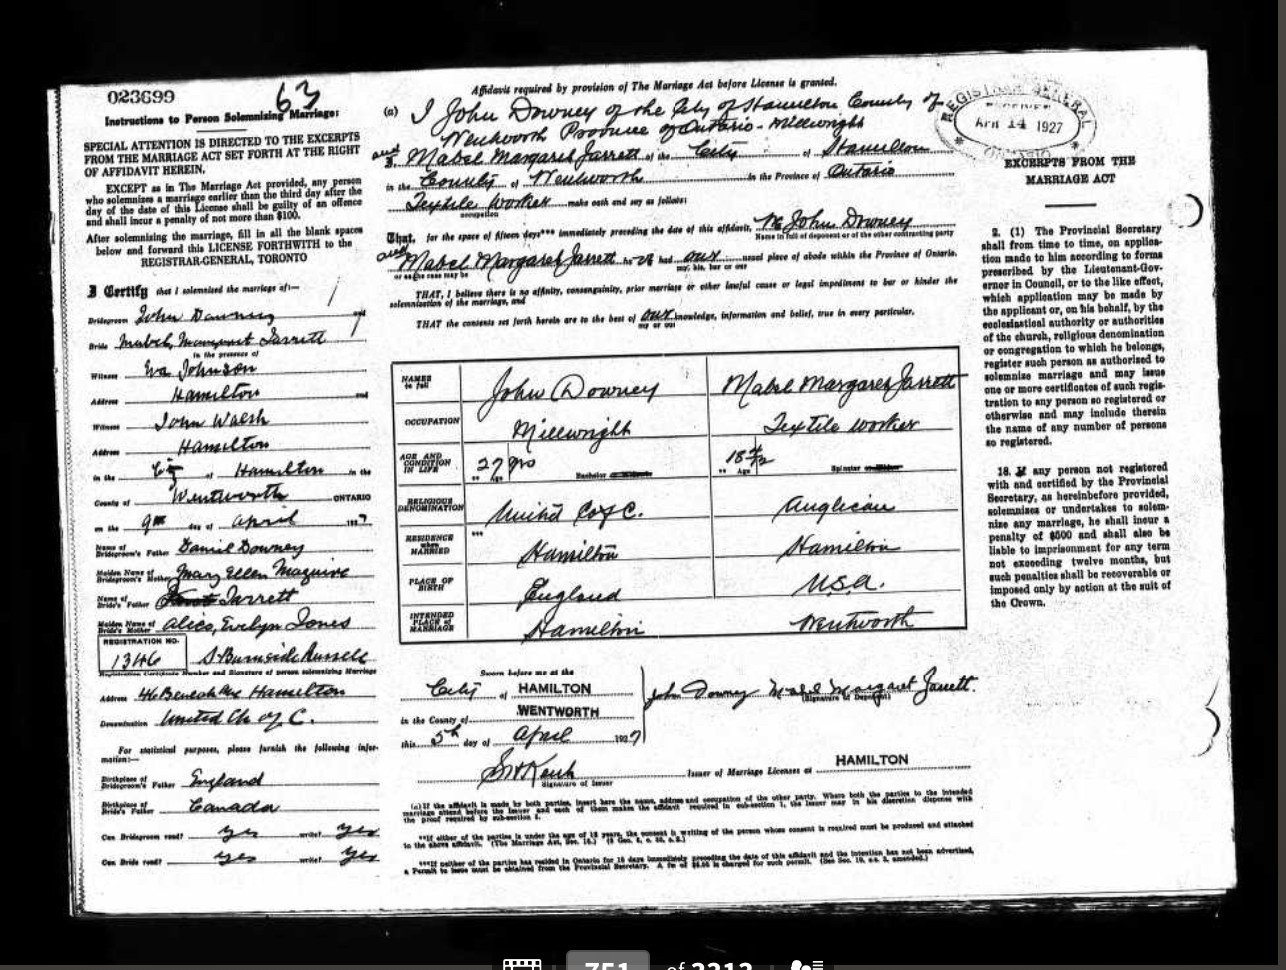 023699
63
Instructions to Person Solemnizing Marriage:
SPECIAL ATTENTION IS DIRECTED TO THE EXCERPTS
FROM THE MARRIAGE ACT SET FORTH AT THE RIGHT
OF AFFIDAVIT HEREIN.
EXCEPT as in The Marriage Act provided, any person
who solemnizes a marriage earlier than the third day after the
day of the date of this License shall be guilty of an offence
and shall incur a penalty of not more than $100.
After solemnizing the marriage, fill in all the blank spaces
below and forward this LICENSE FORTHWITH to the
REGISTRAR-GENERAL, TORONTO
I Certify that I solemnized the marriage of:—
Bridegroom John Downey and
Bride Mabel Margaret Jarrett
in the presence of
Witness Eva Johnson
Address Hamilton and
Witness John Walsh
Address Hamilton
in the City of Hamilton in the
County of Wentworth ONTARIO
on the 9th day of April 1927
Name of Bridegroom's Father Daniel Downey
Maiden Name of Bridegroom's Mother Mary Ellen Maguire
Name of Bride's Father Jarrett
Maiden Name of Bride's Mother Alice, Evelyn Jones
REGISTRATION NO.
1346 S Burnside Russell
Registration Certificate Number and Signature of person solemnizing Marriage
Address Hamilton
Denomination United Ch of C.
For statistical purposes, please furnish the following infor-
mation:—
Birthplace of Father England
Birthplace of Father Canada
Can Bridegroom read? yes write? yes
Can Bride read? yes write? yes
Affidavit required by provision of The Marriage Act before License is granted.
(a) I John Downey of the City of Hamilton County of
Wentworth Province of Ontario - Millwright
and
Mabel Margaret Jarrett of the City of Hamilton
in the County of Wentworth in the Province of Ontario
Textile Worker make oath and say as follows:
occupation
That, for the space of fifteen days*** immediately preceding the date of this affidavit, John Downey
Name in full of deponent or of the other contracting party
and
Mabel Margaret Jarrett had our usual place of abode within the Province of Ontario.
or as the case may be my, his, her or our
THAT, I believe there is no affinity, consanguinity, prior marriage or other lawful cause or legal impediment to bar or hinder the
solemnization of the marriage, and
THAT the consents set forth herein are to the best of our knowledge, information and belief, true in every particular.
my or our
NAMES in full John Downey Mabel Margaret Jarrett
OCCUPATION Millwright Textile worker
AGE AND CONDITION IN LIFE 27 yrs Age Bachelor 18 Age Spinster
RELIGIOUS DENOMINATION United C of C. Anglican
RESIDENCE when MARRIED *** Hamilton Hamilton
PLACE OF BIRTH England U.S.A.
INTENDED PLACE of MARRIAGE Hamilton Wentworth
Sworn before me at the
City of HAMILTON
in the County of WENTWORTH
this 5th day of April 1927
John Downey Mabel Margaret Jarrett.
(Signature of Deponent)
Signature of Issuer
Issuer of Marriage Licenses at HAMILTON
(a) If the affidavit is made by both parties, insert here the name, address and occupation of the other party. Where both the parties to the intended
marriage attend before the issuer and each of them makes the affidavit required in sub-section 1, the issuer may in his discretion dispense with
the proof required by sub-section 2.
**If either of the parties is under the age of 18 years, the consent in writing of the person whose consent is required must be produced and attached
to the above affidavit. (The Marriage Act, Sec. 15.)
***If neither of the parties has resided in Ontario for 15 days immediately preceding the date of this affidavit and the intention has not been advertised,
a Permit to issue must be obtained from the Provincial Secretary. A fee of is charged for such permit.
REGISTRAR GENERAL
RECEIVED
APR 14 1927
ONTARIO
EXCERPTS FROM THE
MARRIAGE ACT
2. (1) The Provincial Secretary
shall from time to time, on applica-
tion made to him according to forms
prescribed by the Lieutenant-Gov-
ernor in Council, or to the like effect,
which application may be made by
the applicant or, on his behalf, by the
ecclesiastical authority or authorities
of the church, religious denomination
or congregation to which he belongs,
register such person as authorized to
solemnize marriage and may issue
one or more certificates of such regis-
tration to any person so registered or
otherwise and may include therein
the name of any number of persons
so registered.
18. If any person not registered
with and certified by the Provincial
Secretary, as hereinbefore provided,
solemnizes or undertakes to solem-
nize any marriage, he shall incur a
penalty of $500 and shall also be
liable to imprisonment for any term
not exceeding twelve months, but
such penalties shall be recoverable or
imposed only by action at the suit of
the Crown.
751 of 2213